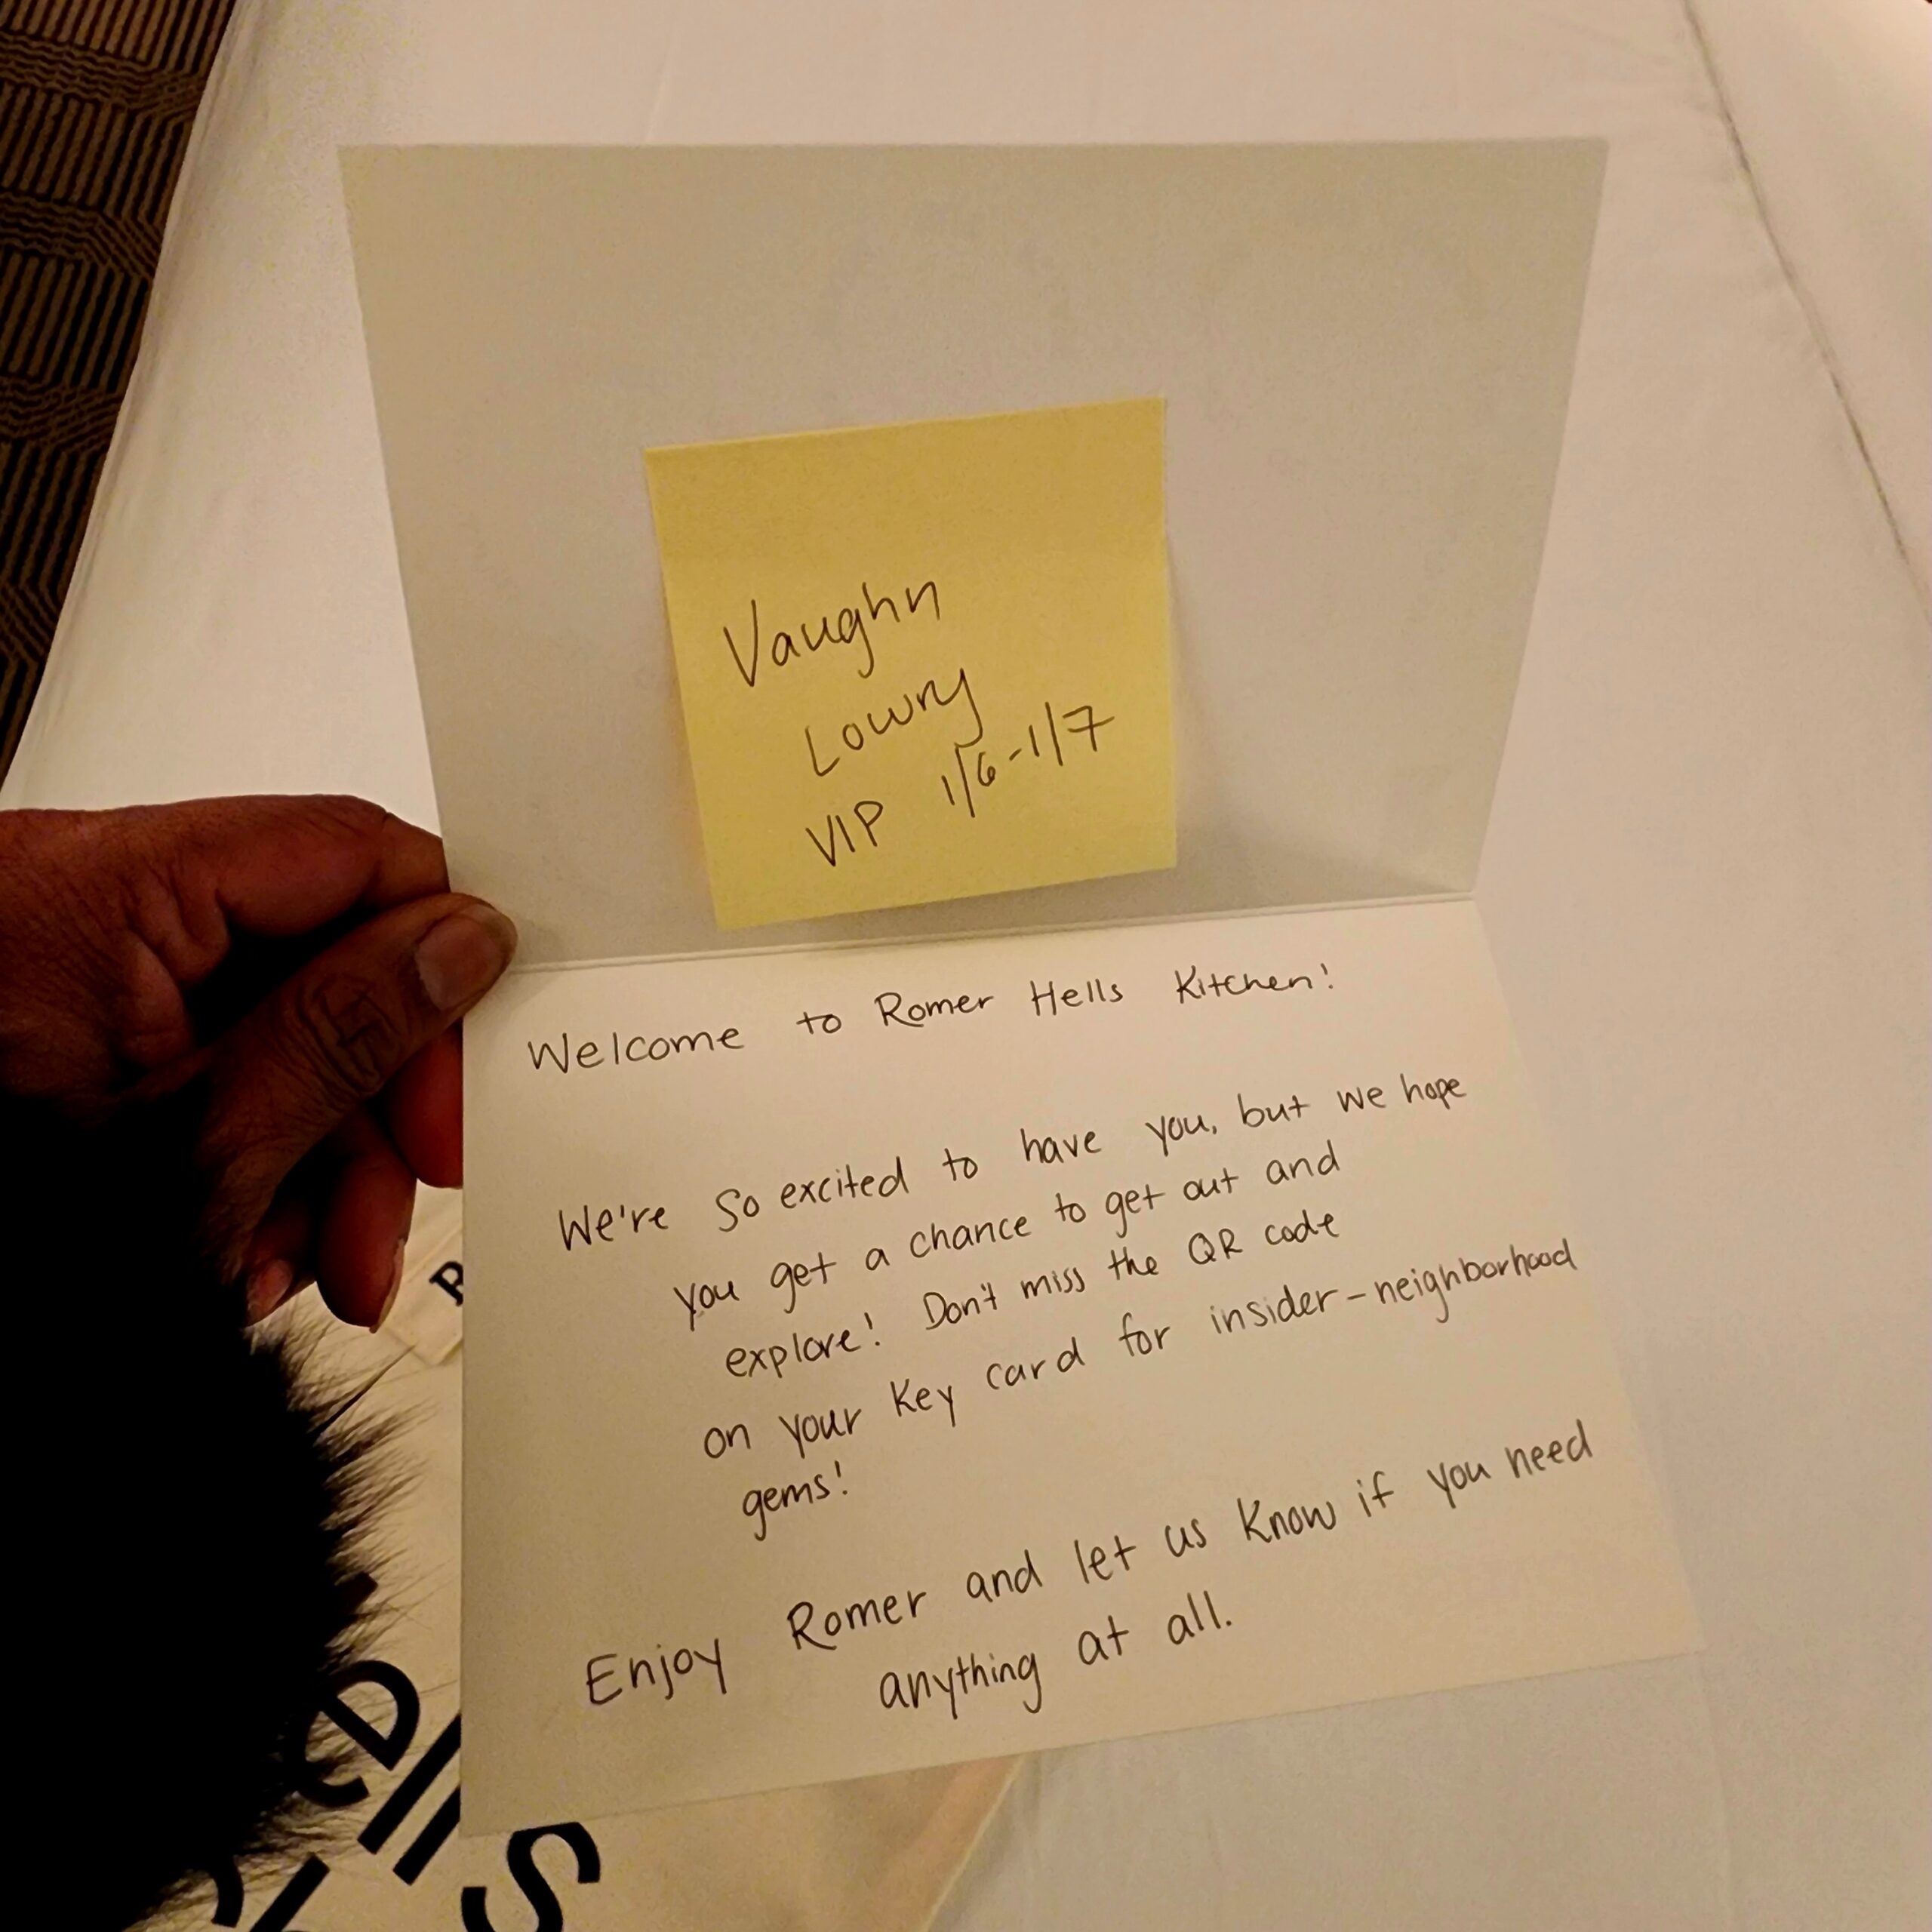 Vaughn
Lowry
VIP 1/6-1/7
Welcome to Romer Hells Kitchen!
We're so excited to have you, but we hope
you get a chance to get out and
explore! Don't miss the QR code
on your key card for insider-neighborhood
gems!
Enjoy Romer and let us know if you need
anything at all.